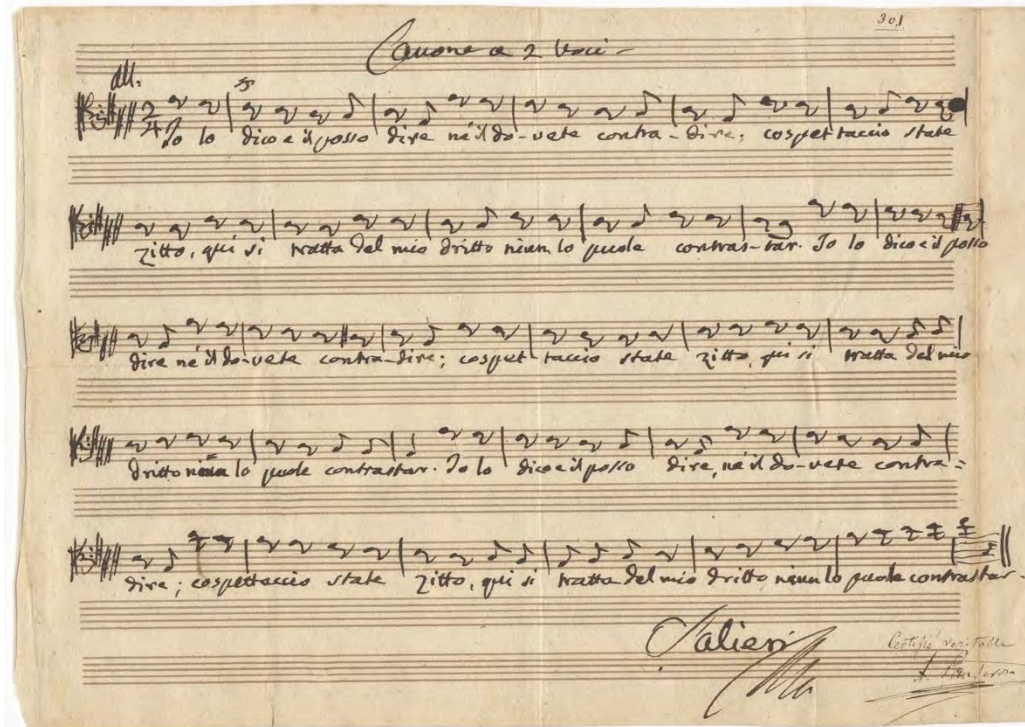 301
Canone a 2 Voci
All.
2/4 Io lo dico e il posso dire nè il do-vete contra-dire; cospettaccio state
zitto, qui si tratta del mio dritto niun lo puole contras-tar. Io lo dico e il posso
dire nè il do-vete contra-dire; cospettaccio state zitto, qui si tratta del mio
dritto niun lo puole contrastar. Io lo dico e il posso dire, nè il do-vete contra=
dire; cospettaccio state zitto, qui si tratta del mio dritto niun lo puole contrastar-
Salieri
Certifié véritable
A.